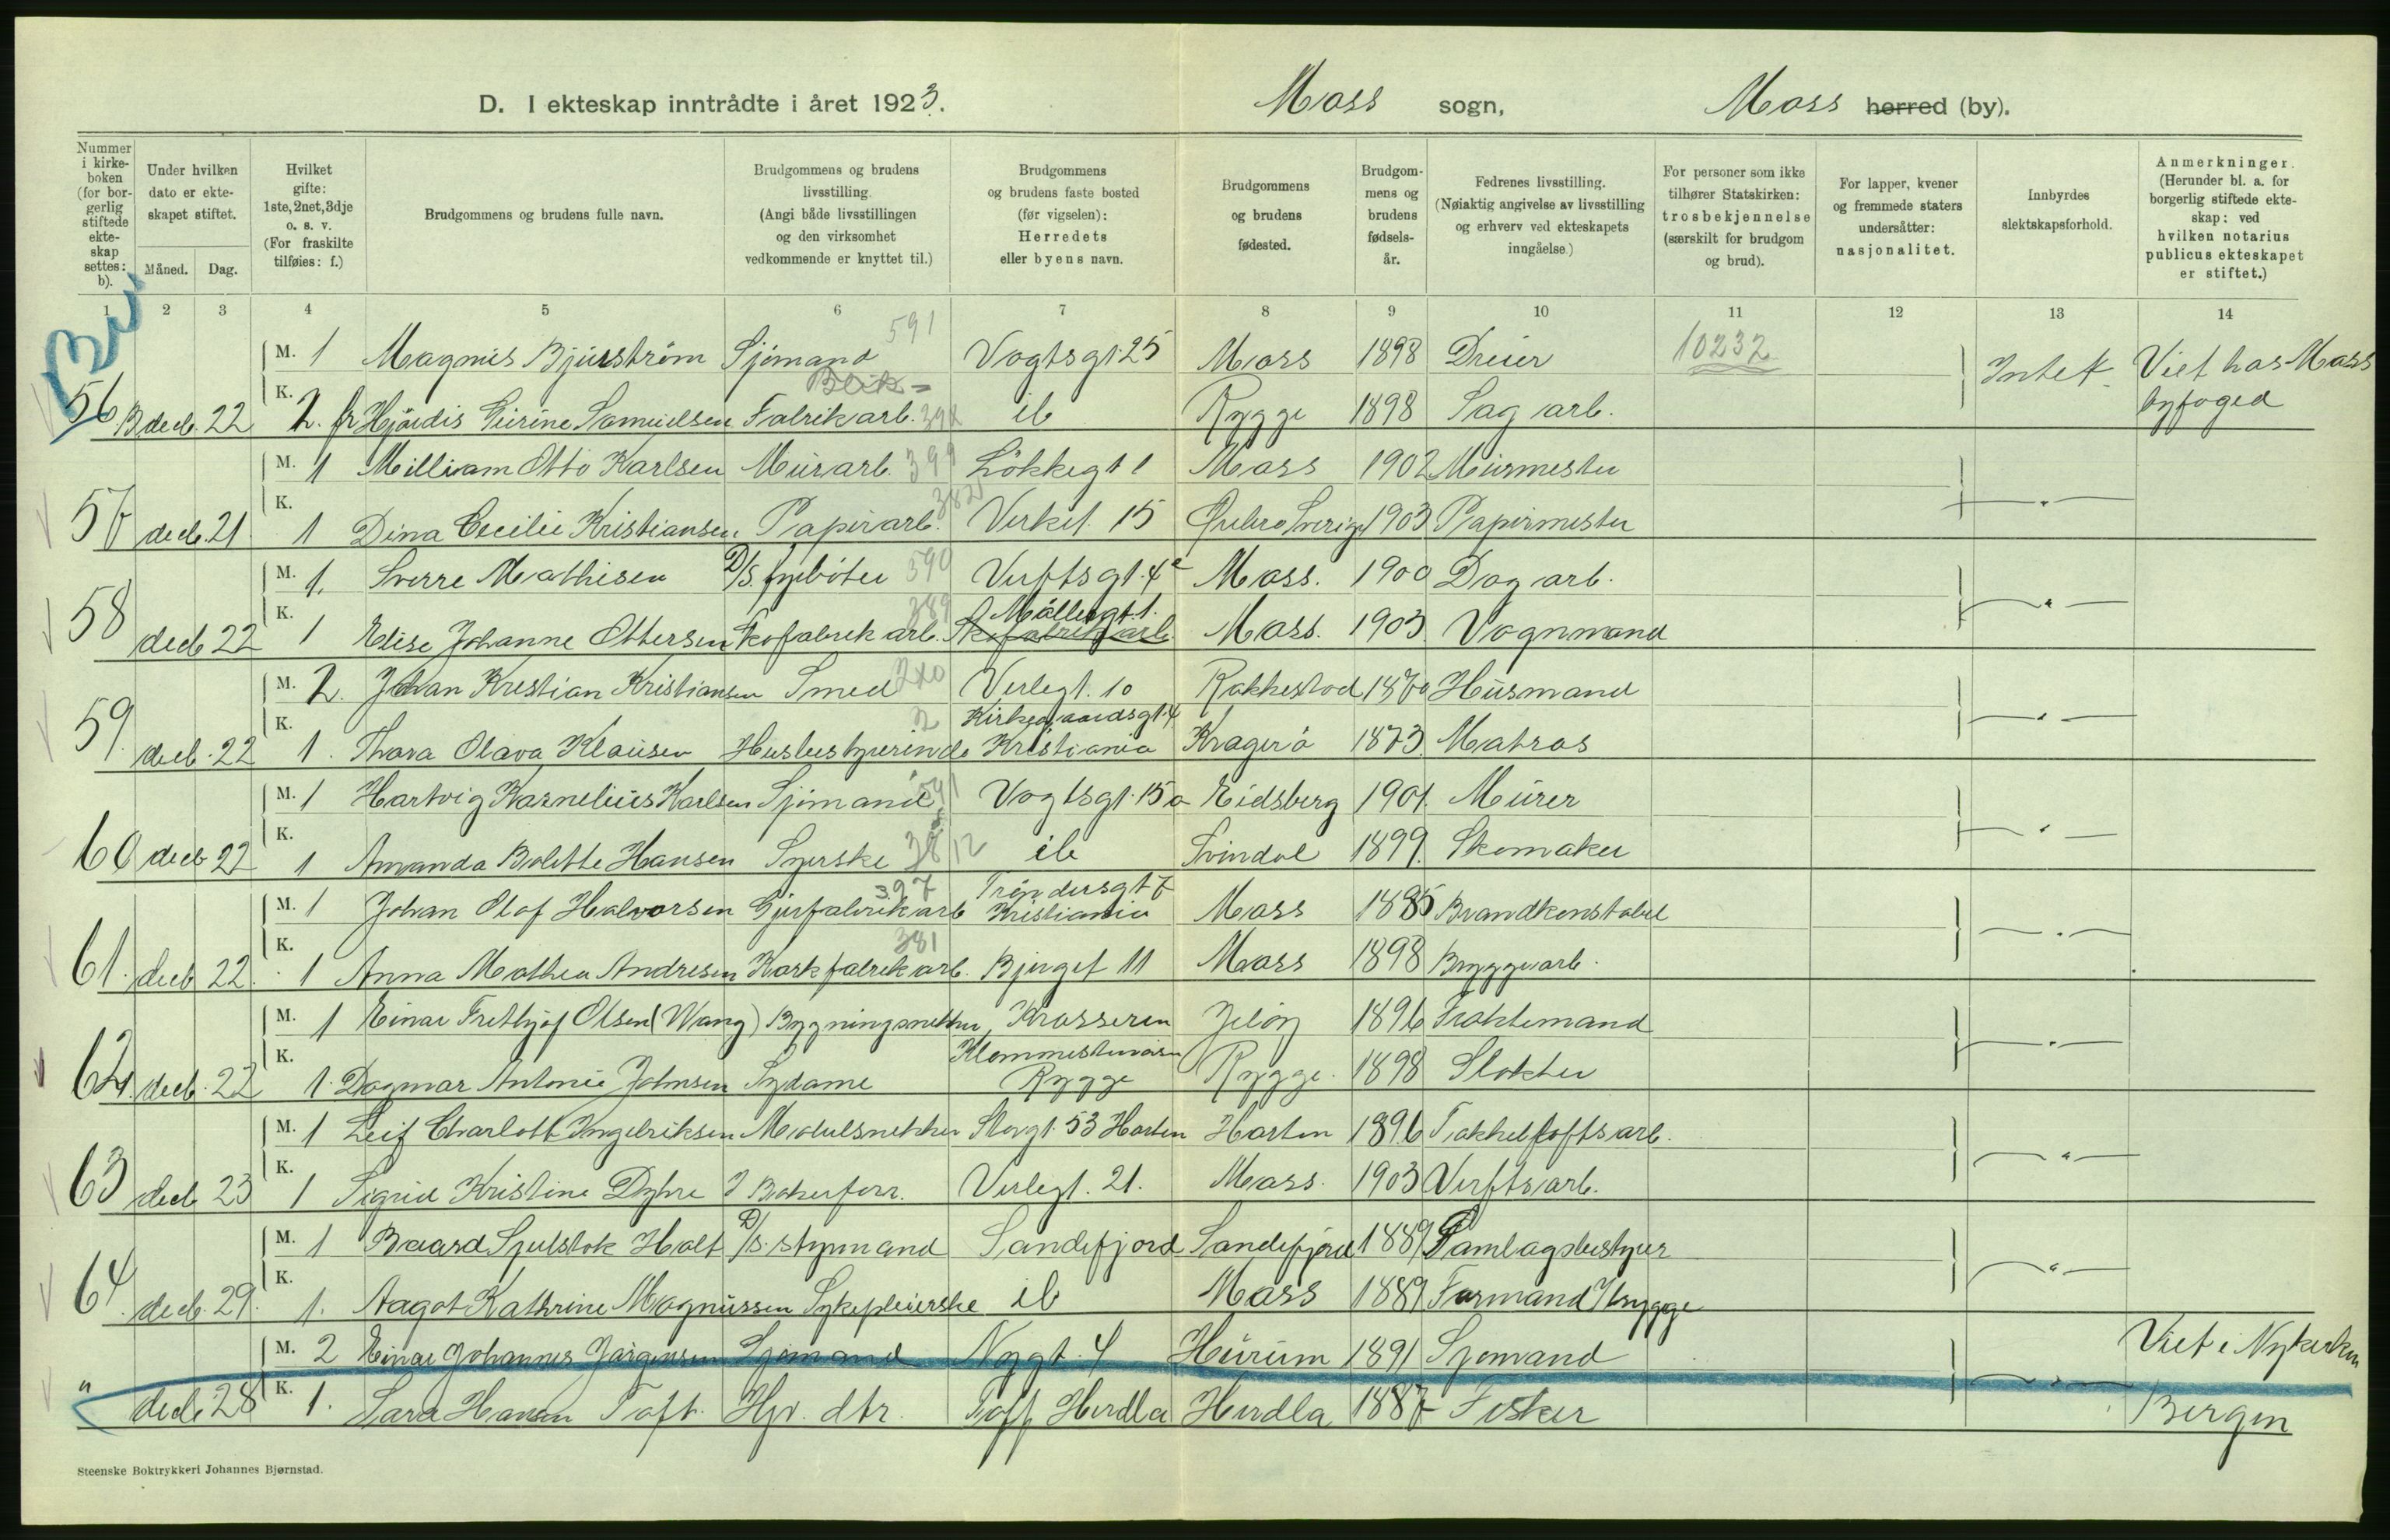 D. I ekteskap inntrådte i året 1923. Moss sogn, Moss herred (by).
Nummer i kirkeboken (for borgerlig stiftede ekteskap settes: b).
Under hvilken dato er ekteskapet stiftet.
Måned. Dag.
Hvilket gifte: 1ste, 2net, 3dje o. s. v. (For fraskilte tilføies: f.)
Brudgommens og brudens fulle navn.
Brudgommens og brudens livsstilling. (Angi både livsstillingen og den virksomhet vedkommende er knyttet til.)
Brudgommens og brudens faste bosted (før vigselen): Herredets eller byens navn.
Brudgommens og brudens fødested.
Brudgommens og brudens fødselsår.
Fedrenes livsstilling. (Nøiaktig angivelse av livsstilling og erhverv ved ekteskapets inngåelse.)
For personer som ikke tilhører Statskirken: trosbekjennelse (særskilt for brudgom og brud).
For lapper, kvener og fremmede staters undersåtter: nasjonalitet.
Innbyrdes slektskapsforhold.
Anmerkninger. (Herunder bl. a. for borgerlig stiftede ekteskap: ved hvilken notarius publicus ekteskapet er stiftet.)
1 2 3 4 5 6 7 8 9 10 11 12 13 14
591
M. 1 Magnus Bjurström Sjömand Vogtsgt 25 Moss 1898 Dreier 10232 Intet Viet hos Moss
Blik-
56 B decb. 22 K. 2. fr Hjördis Sirine Samuelsen Fabrikarb. ib Rygge 1898 Sag arb. byfoged
M. 1 William Otto Karlsen Murarb. 399 Lökkegt 1 Moss 1902 Murmester
382
57 decb. 21 K. 1 Dina Cecilie Kristiansen Papirarb. Verket 15 Örebro Sverige 1903 Papirmester - " -
M. 1. Sverre Mathisen D/S. fyrböter 590 Verftsgt. 4 Moss. 1900 Dag arb.
389 Möllergt 1.
58 decb 22 K. 1 Elise Johanne Ottersen Skofabrik arb. Skofabrik arb Moss. 1903 Vognmand - " -
M. 2. Johan Kristian Kristiansen Smed Verlegt. 10 Rakkestad 1870 Husmand
Kirkegaardsgt. 4
59 decb. 22 K. 1. Thora Olava Klausen Husbestyrerinde Kristiania Kragerö 1873 Matros - " -
M. 1 Hartvig Kornelius Karlsen Sjömand 591 Vogtsgt. 15 a Eidsberg 1901. Murer
60 decb 22 K. 1 Amanda Bolette Hansen Syerske ib Svindal 1899. Skomaker - " -
397 Tröndersgt 7
M. 1 Johan Olaf Halvorsen Gjærfabrik arb Kristiania Moss 1885 Brandkonstabel
381
61. decb 22. K. 1 Anna Mathea Andresen Korkfabrik arb. Bjerget 11 Moss 1898 Bryggearb. - " -
M. 1 Einar Frethjof Olsen (Wang) Bygningsnekker, Krosseren Jelöy 1896 Fraktemand
62. decb. 22 K. 1. Dagmar Antonie Johnsen Sydame Rygge Rygge. 1898 Slakter - " -
M. 1 Leif Charlott Ingebriksen Modelsnekker Storgt. 53 Horten Horten 1896 Takkelloftsarb.
63 decb 23 K. 1 Sigrid Kristine Dyhre Bakerforr. Verlegt. 21. Moss. 1903 Verftsarb. - " -
M. 1 Baard Holt D/S. styrmand Sandefjord Sandefjord 1889 Samlagsbestyrer
64. decb. 29. K. 1. Aagot Kathrine Magnussen Sykepleierske ib Moss 1889 Formand - " -
M. 2 Einar Johannes Jörgensen Sjömand Nygt. 4 Hurum 1891 Sjömand Viet i Nykirken
" decb. 28 K. 1. Sara Hansen Toft. Hjv. dtr. Toft Herdla Herdla 1887 Fisker - " - Bergen
Steenske Boktrykkeri Johannes Bjørnstad.